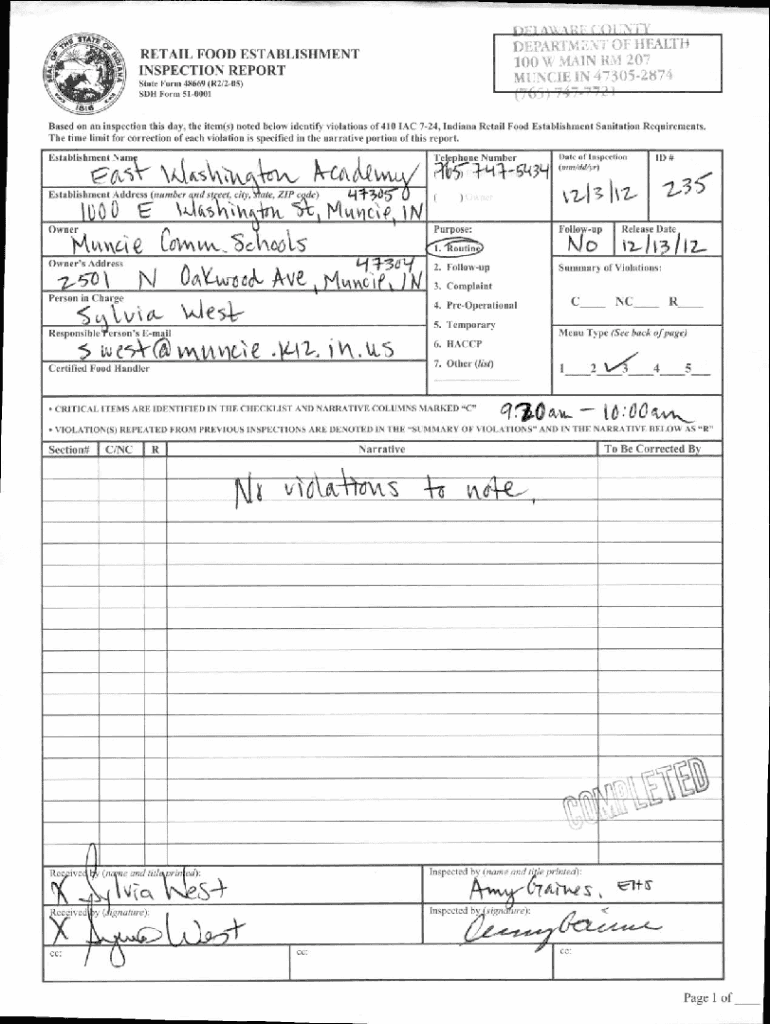 DELAWARE COUNTY
DEPARTMENT OF HEALTH
100 W MAIN RM 207
MUNCIE IN 47305-2874
(765) 747-7721
RETAIL FOOD ESTABLISHMENT
INSPECTION REPORT
State Form 48669 (R2/2-05)
SDH Form 51-0001
Based on an inspection this day, the item(s) noted below identify violations of 410 IAC 7-24, Indiana Retail Food Establishment Sanitation Requirements.
The time limit for correction of each violation is specified in the narrative portion of this report.
Establishment Name
East Washington Academy
Telephone Number
765 747-5434
( ) Owner
Date of Inspection
(mm/dd/yr)
12/3/12
ID #
235
Establishment Address (number and street, city, state, ZIP code)
47305
1000 E Washington St, Muncie, IN
Owner
Muncie Comm. Schools
Purpose:
1. Routine
2. Follow-up
3. Complaint
4. Pre-Operational
5. Temporary
6. HACCP
7. Other (list)
Follow-up
No
Release Date
12/13/12
Owner's Address
47304
2501 N Oakwood Ave, Muncie, IN
Summary of Violations:
C___ NC___ R___
Person in Charge
Sylvia West
Responsible Person's E-mail
swest@muncie.k12.in.us
Menu Type (See back of page)
1___2___3___4___5___
Certified Food Handler
• CRITICAL ITEMS ARE IDENTIFIED IN THE CHECKLIST AND NARRATIVE COLUMNS MARKED "C"
9:20am - 10:00am
• VIOLATION(S) REPEATED FROM PREVIOUS INSPECTIONS ARE DENOTED IN THE "SUMMARY OF VIOLATIONS" AND IN THE NARRATIVE BELOW AS "R"
Section# C/NC R Narrative To Be Corrected By
No violations to note.
COMPLETED
Received by (name and title printed):
X Sylvia West
Inspected by (name and title printed):
Amy Gaines, EHS
Received by (signature):
X Sylvia West
Inspected by (signature):
cc: cc: cc:
Page 1 of ___